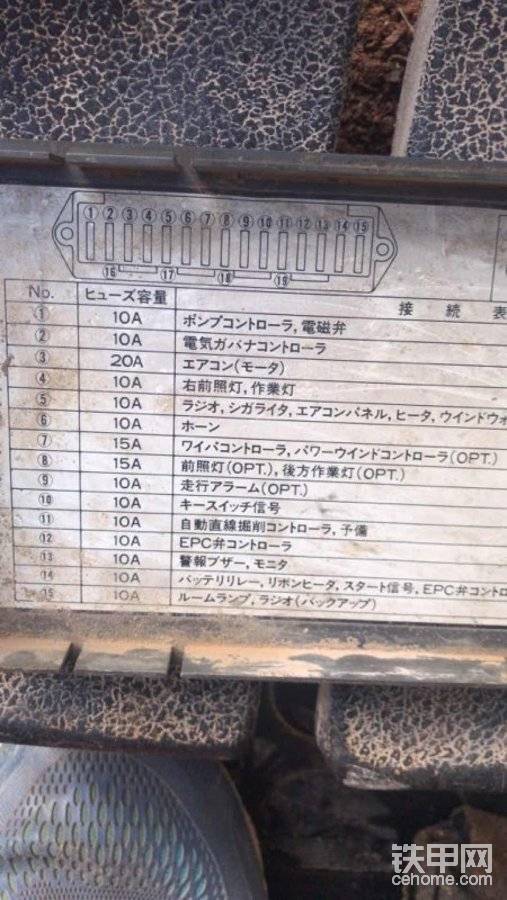 ① ② ③ ④ ⑤ ⑥ ⑦ ⑧ ⑨ ⑩ ⑪ ⑫ ⑬ ⑭ ⑮
⑯ ⑰ ⑱ ⑲
No. ヒューズ容量 接続表
① 10A ポンプコントローラ,電磁弁
② 10A 電気ガバナコントローラ
③ 20A エアコン(モータ)
④ 10A 右前照灯,作業灯
⑤ 10A ラジオ,シガライタ,エアコンパネル,ヒータ,ウインドウォ
⑥ 10A ホーン
⑦ 15A ワイパコントローラ,パワーウインドコントローラ(OPT.)
⑧ 15A 前照灯(OPT.),後方作業灯(OPT.)
⑨ 10A 走行アラーム(OPT.)
⑩ 10A キースイッチ信号
⑪ 10A 自動直線掘削コントローラ,予備
⑫ 10A EPC弁コントローラ
⑬ 10A 警報ブザー,モニタ
⑭ 10A バッテリリレー,リボンヒータ,スタート信号,EPC弁コントロ
⑮ 10A ルームランプ,ラジオ(バックアップ)
铁甲网
cehome.com